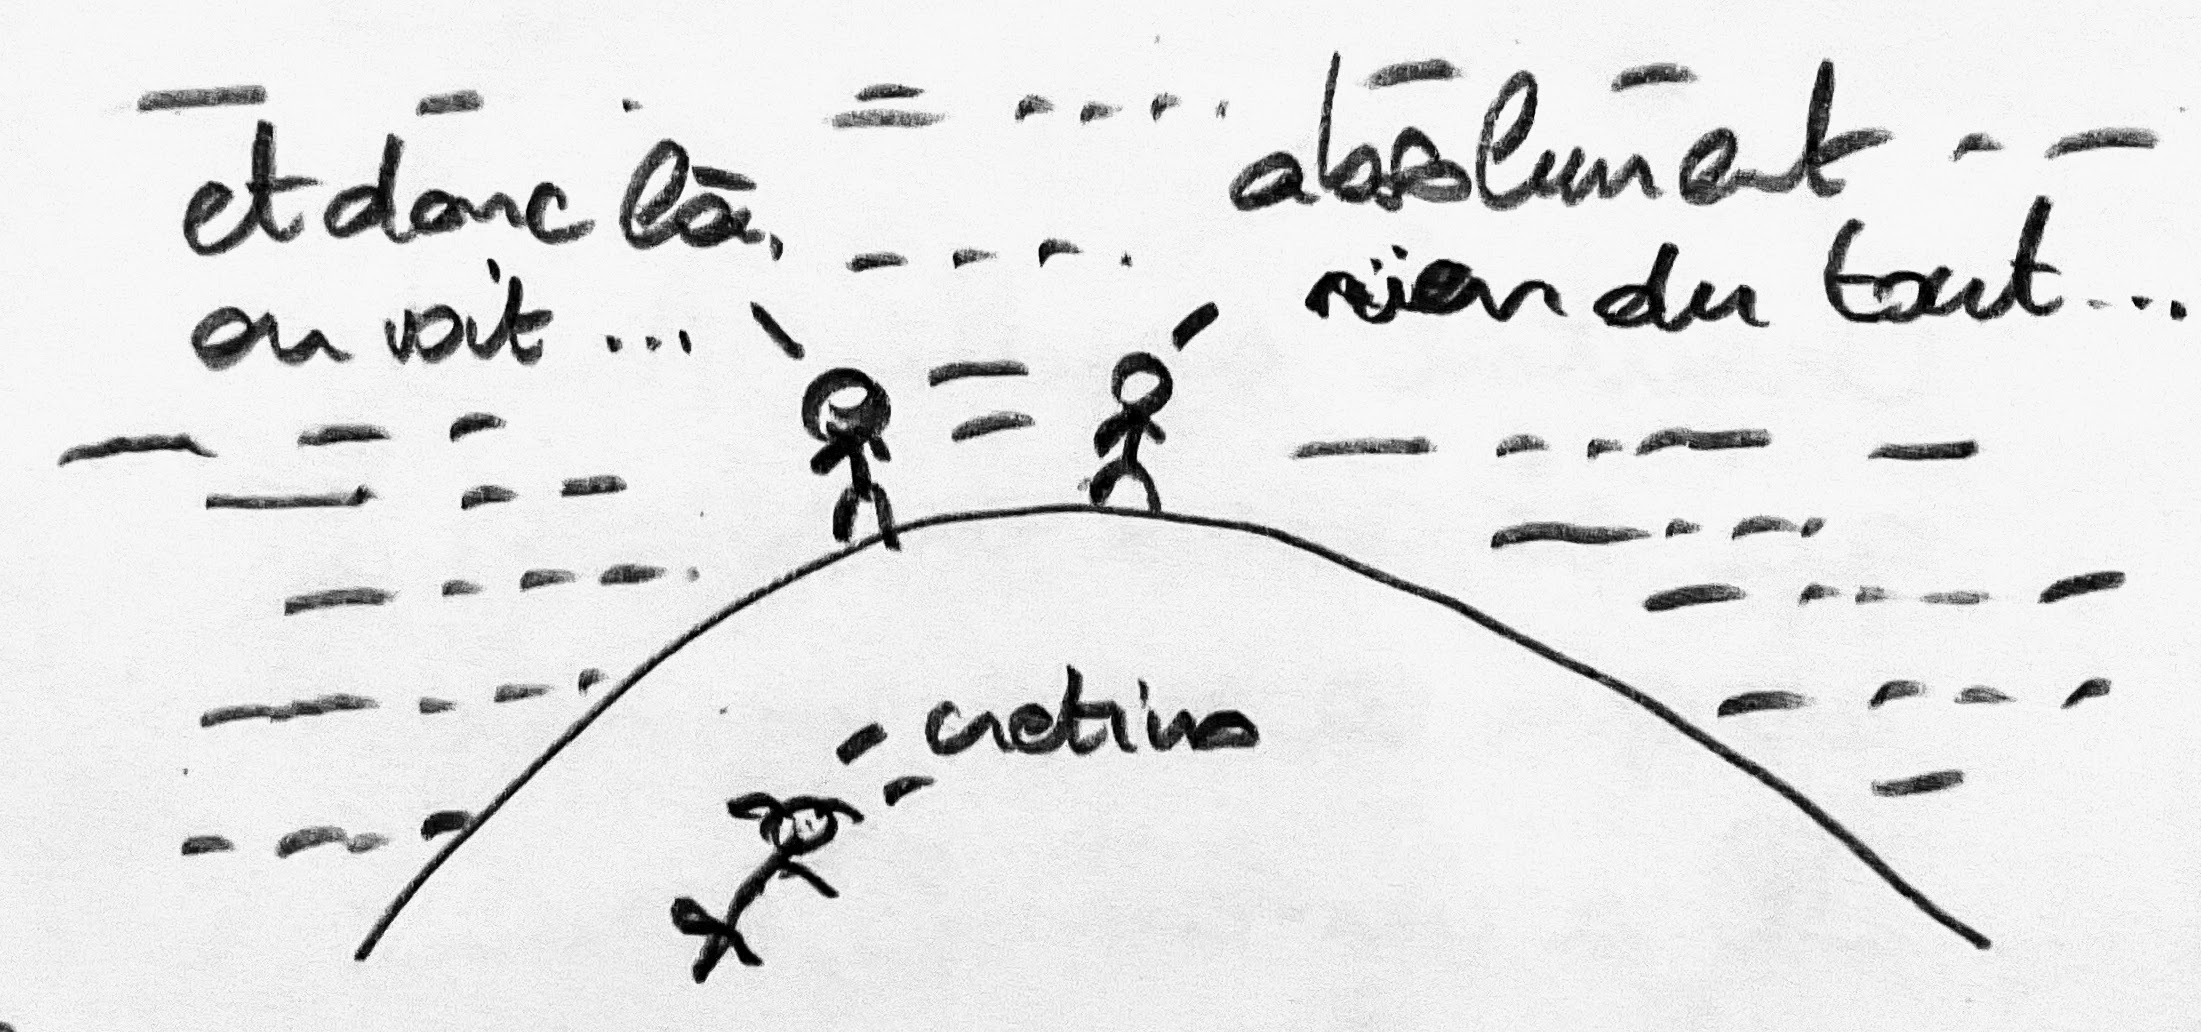 et donc là,
on voit ...
absolument
rien du tout...
cretins